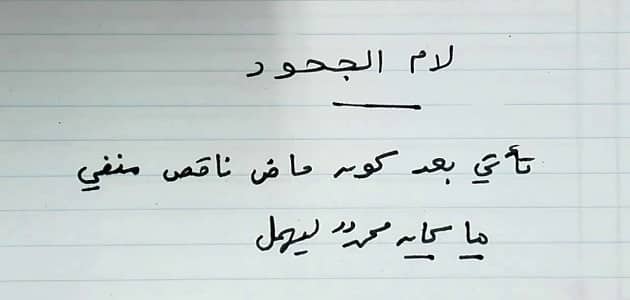 لام الجحود
تأتي بعد كون ماض ناقص منفي
ما كان محمد ليهمل